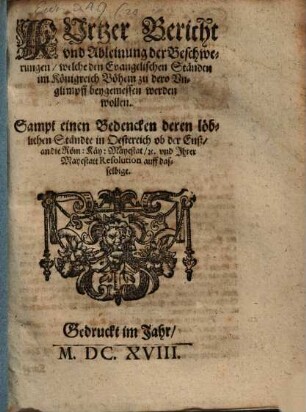 KUrtzer Bericht
vnd Ableinung der Beschwe-
rungen / welche den Evangelischen Ständen
im Königreich Böhem zu dero Vn-
glimpff beygemessen werden
wollen.
Sampt einen Bedencken deren löb-
lichen Ständte in Oesterreich ob der Enß /
an die Röm: Käy: Mayestat / ꝛc. vnd Ihrer
Mayestatt Resolution auff das-
selbige.
Gedruckt im Jahr /
M. DC. XVIII.